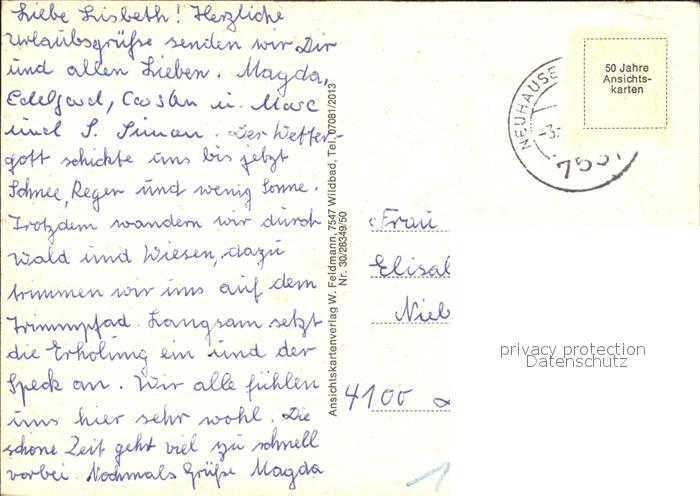 Liebe Lisbeth! Herzliche
Urlaubsgrüße senden wir Dir
und allen Lieben. Magda,
Edelgard, Carsten u. Marc
und S. Simon. Der Wetter-
gott schickte uns bis jetzt
Schnee, Regen und wenig Sonne.
Trotzdem wandern wir durch
Wald und Wiesen, dazu
trimmen wir uns auf dem
Trimmpfad. Langsam setzt
die Erholung ein und der
Speck an. Wir alle fühlen
uns hier sehr wohl. Die
schöne Zeit geht viel zu schnell
vorbei. Nochmals Grüße Magda
Ansichtskartenverlag W. Feldmann, 7547 Wildbad, Tel. 07081/2013
Nr. 30/28349/50
NEUHAUSE
-3.
7531
50 Jahre
Ansichts-
karten
Frau
Elisab
Nieb
4100
privacy protection
Datenschutz